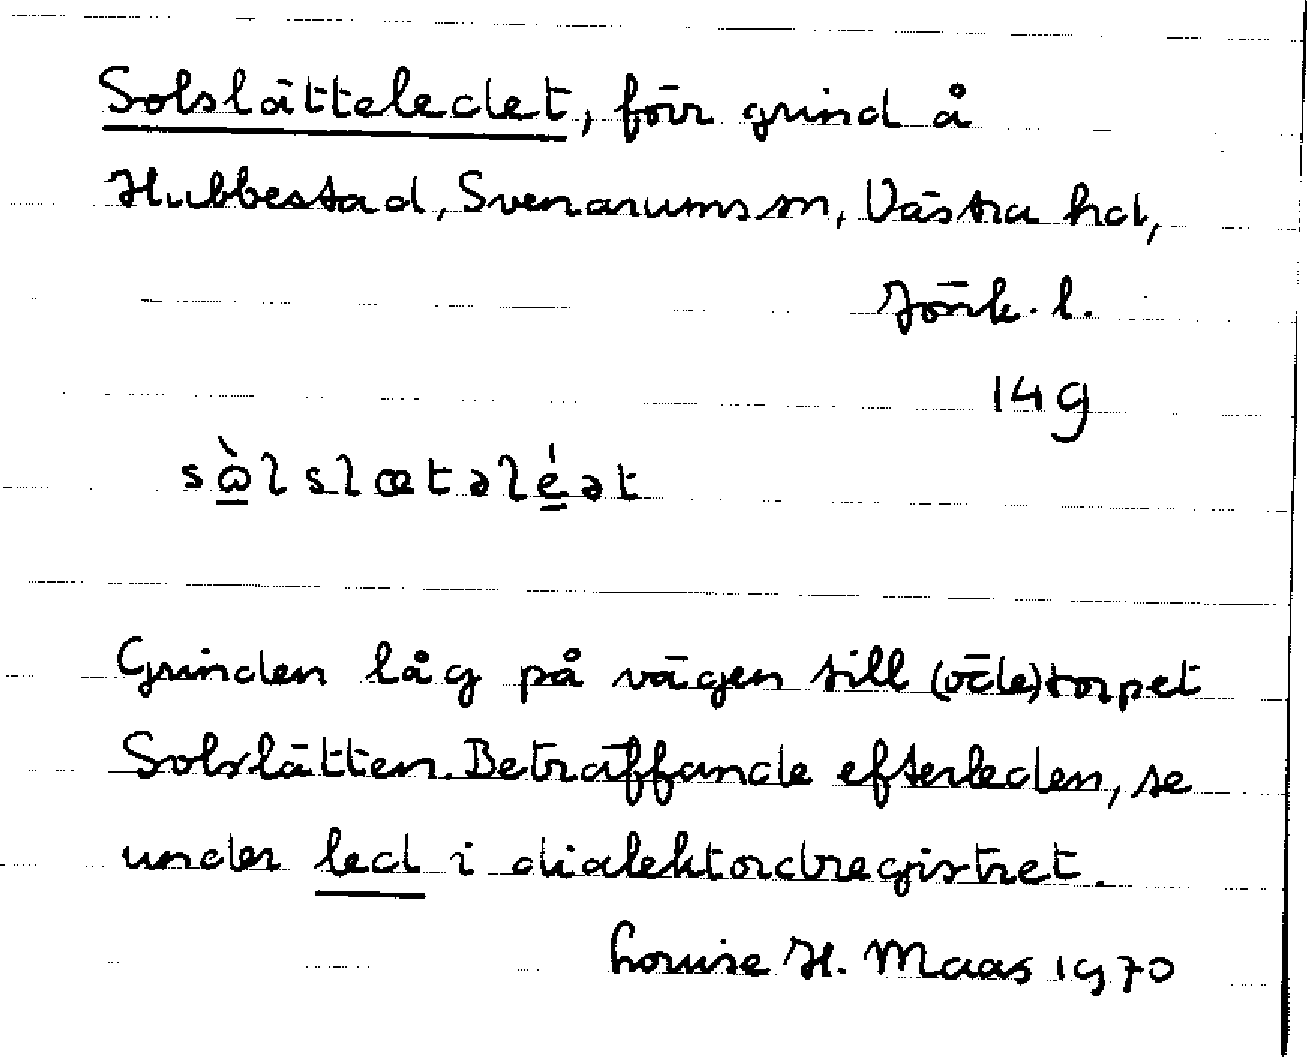 Solslätteledet, förr grind å
Hubbestad, Svenarums sn, Västra hd,
Jönk. l.
14g
sὼlslætəléət
Grinden låg på vägen till (öde)torpet
Solslätten. Beträffande efterleden, se
under led i dialektordregistret.
Louise H. Maas 1970